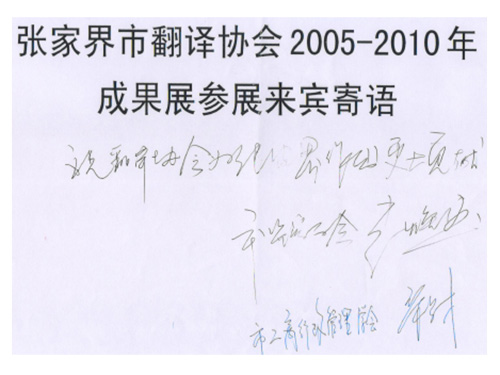 张家界市翻译协会2005-2010年
成果展参展来宾寄语
祝翻译协会为张家界作出更大贡献
市总工会
市工商行政管理学会